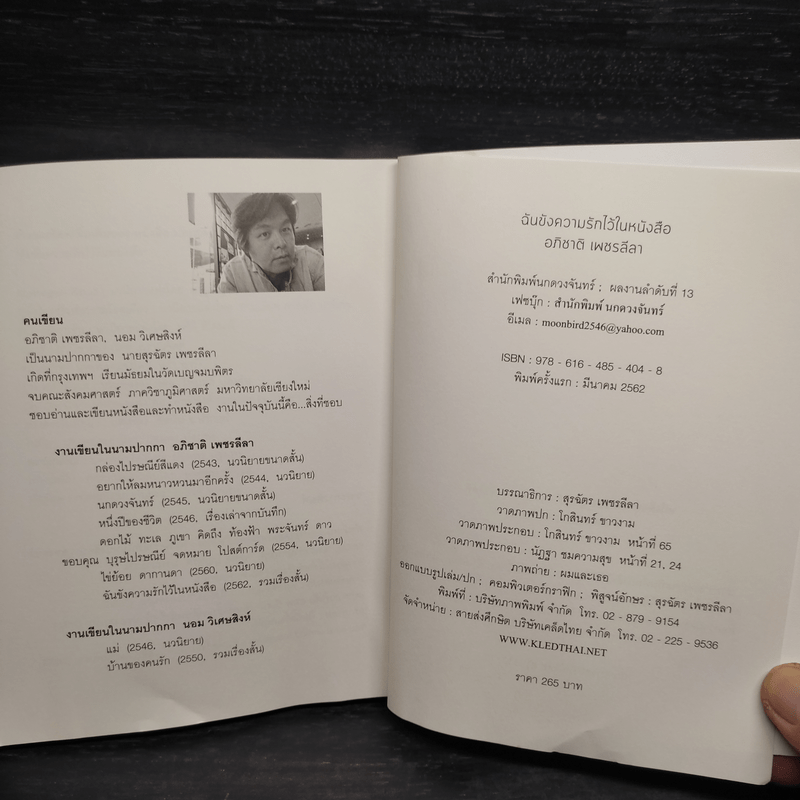 คนเขียน
อภิชาติ เพชรลีลา, นอม วิเศษสิงห์
เป็นนามปากกาของ นายสุรฉัตร เพชรลีลา
เกิดที่กรุงเทพฯ เรียนมัธยมในวัดเบญจมบพิตร
จบคณะสังคมศาสตร์ ภาควิชาภูมิศาสตร์ มหาวิทยาลัยเชียงใหม่
ชอบอ่านและเขียนหนังสือและทำหนังสือ งานในปัจจุบันนี้คือ...สิ่งที่ชอบ
งานเขียนในนามปากกา อภิชาติ เพชรลีลา
กล่องไปรษณีย์สีแดง (2543, นวนิยายขนาดสั้น)
อยากให้ลมหนาวหวนมาอีกครั้ง (2544, นวนิยาย)
นกดวงจันทร์ (2545, นวนิยายขนาดสั้น)
หนึ่งปีของชีวิต (2546, เรื่องเล่าจากบันทึก)
ดอกไม้ ทะเล ภูเขา คิดถึง ท้องฟ้า พระจันทร์ ดาว
ขอบคุณ บุรุษไปรษณีย์ จดหมาย โปสต์การ์ด (2554, นวนิยาย)
ไข่ย้อย ดากานดา (2560, นวนิยาย)
ฉันขังความรักไว้ในหนังสือ (2562, รวมเรื่องสั้น)
งานเขียนในนามปากกา นอม วิเศษสิงห์
แม่ (2546, นวนิยาย)
บ้านของคนรัก (2550, รวมเรื่องสั้น)
ฉันขังความรักไว้ในหนังสือ
อภิชาติ เพชรลีลา
สำนักพิมพ์นกดวงจันทร์ ; ผลงานลำดับที่ 13
เฟซบุ๊ก : สำนักพิมพ์ นกดวงจันทร์
อีเมล : moonbird2546@yahoo.com
ISBN : 978 - 616 - 485 - 404 - 8
พิมพ์ครั้งแรก : มีนาคม 2562
บรรณาธิการ : สุรฉัตร เพชรลีลา
วาดภาพปก : โกสินทร์ ขาวงาม
วาดภาพประกอบ : โกสินทร์ ขาวงาม หน้าที่ 65
วาดภาพประกอบ : นัฏฐา ชมความสุข หน้าที่ 21, 24
ภาพถ่าย : ผมและเธอ
ออกแบบรูปเล่ม/ปก ; คอมพิวเตอร์กราฟิก ; พิสูจน์อักษร : สุรฉัตร เพชรลีลา
พิมพ์ที่ : บริษัทภาพพิมพ์ จำกัด โทร. 02 - 879 - 9154
จัดจำหน่าย : สายส่งศึกษิต บริษัทเคล็ดไทย จำกัด โทร. 02 - 225 - 9536
WWW.KLEDTHAI.NET
ราคา 265 บาท